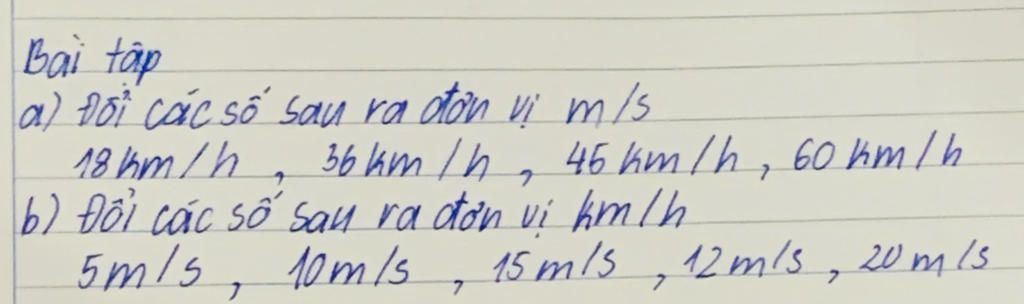 Bài tập
a) Đổi các số sau ra đơn vị m/s
18km/h, 36km/h, 45km/h, 60km/h
b) Đổi các số sau ra đơn vị km/h
5m/s, 10m/s, 15m/s, 12m/s, 20m/s